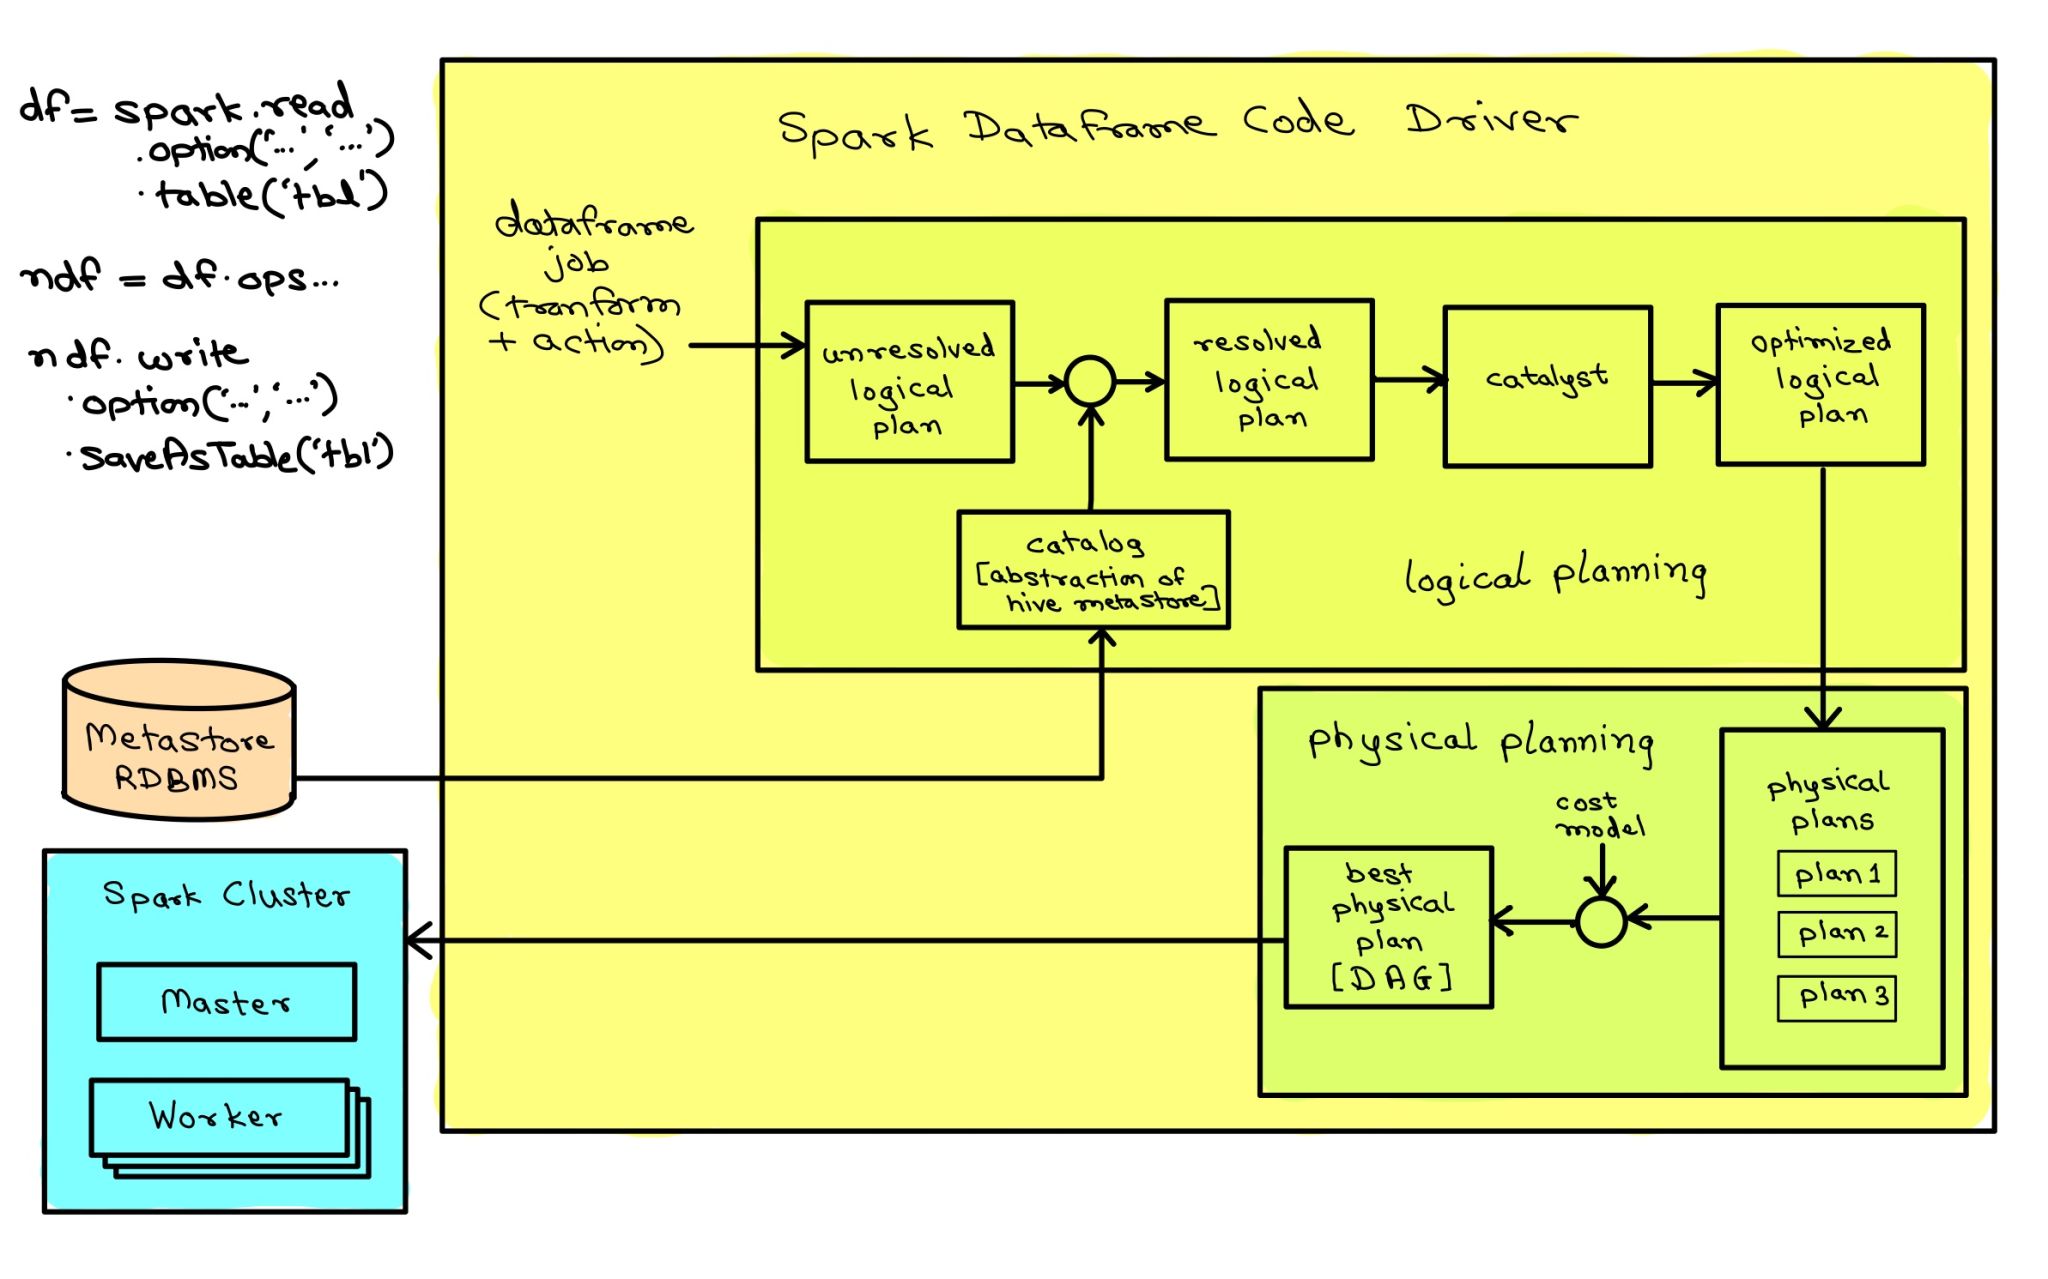 df= spark.read
.option('...', '...')
.table('tbl')
ndf = df.ops...
ndf.write
.option('...', '...')
.saveAsTable('tbl')
Spark Dataframe Code Driver
dataframe
job
(tranform
+ action)
unresolved
logical
plan
resolved
logical
plan
catalyst
optimized
logical
plan
catalog
[abstraction of
hive metastore]
logical planning
Metastore
RDBMS
physical planning
cost
model
physical
plans
plan 1
plan 2
plan 3
best
physical
plan
[DAG]
Spark Cluster
Master
Worker